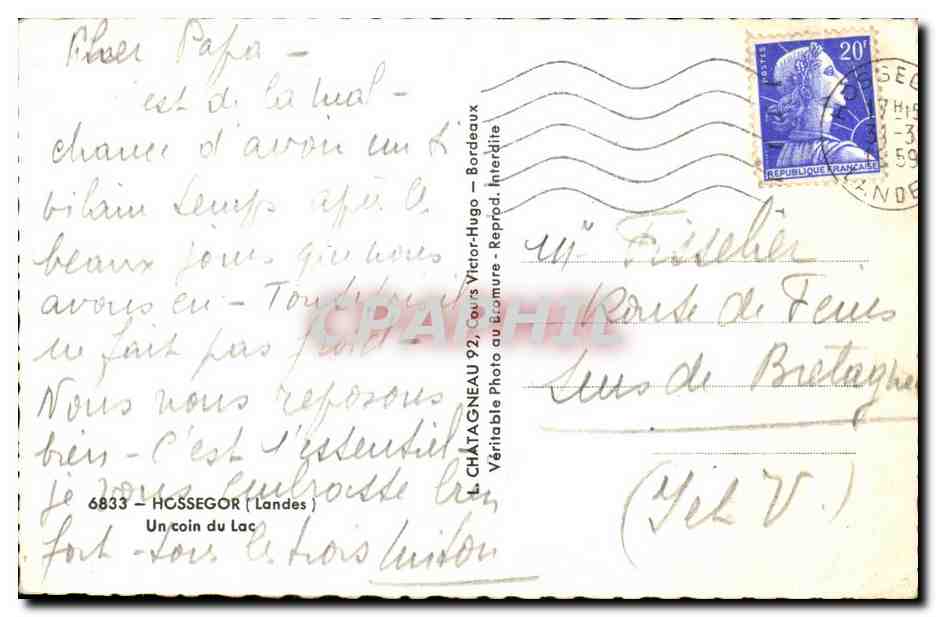 Cher Papa -
est de la mal-
chance d'avoir un si
vilain temps après le
beaux jours que nous
avons eu -
ne fait pas froid -
Nous nous reposons
bien - C'est l'essentiel
je vous embrasse bien
fort - tous les trois
6833 - HOSSEGOR (Landes)
Un coin du Lac
L. CHATAGNEAU 92, Cours Victor-Hugo - Bordeaux
Véritable Photo au Bromure - Reprod. Interdite
POSTES
20F
REPUBLIQUE FRANÇAISE
HOSSEGO
17H15
3-3
59
LANDE
Mr
Route de
Sens de Bretagne
(Ille V.)
CPAPHIL